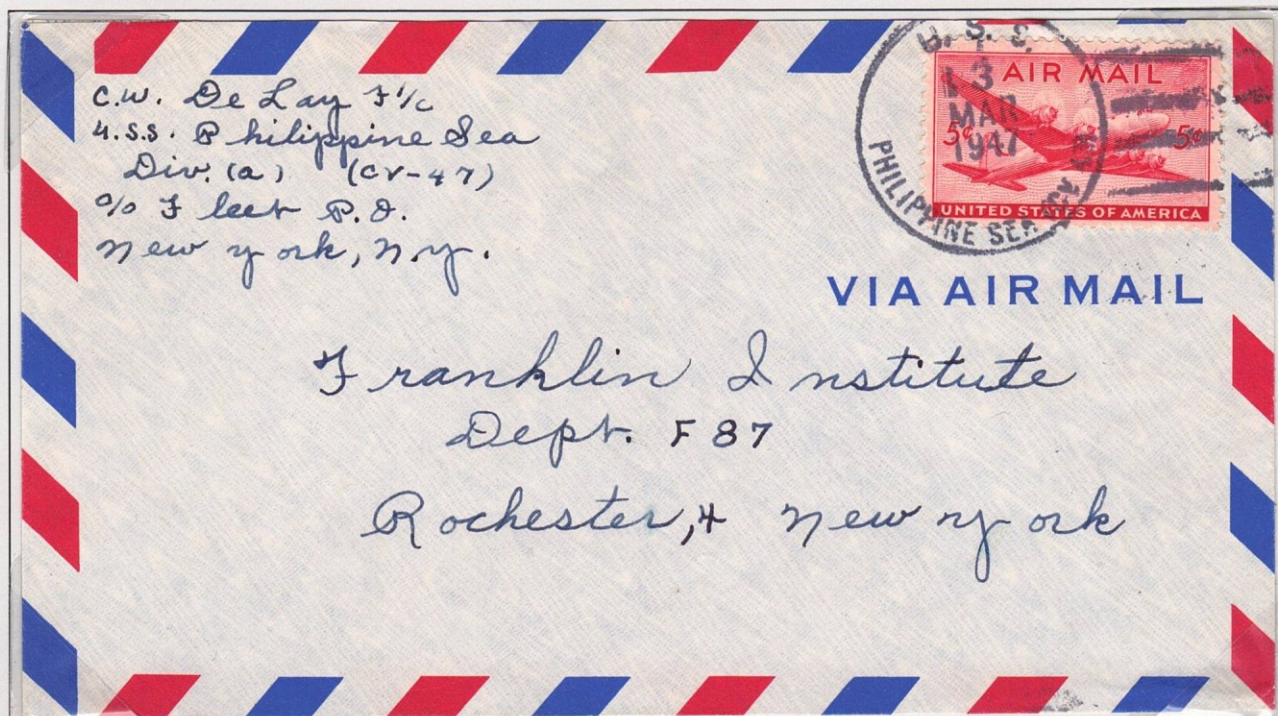 C.W. De Lay F 1/c
U.S.S. Philippine Sea
Div. (a) (CV-47)
c/o Fleet P.O.
New York, N.Y.
U. S. S.
3
MAR
1947
PHILIPPINE SEA
AIR MAIL
5¢ 5¢
UNITED STATES OF AMERICA
VIA AIR MAIL
Franklin Institute
Dept. F 87
Rochester, 4 New York